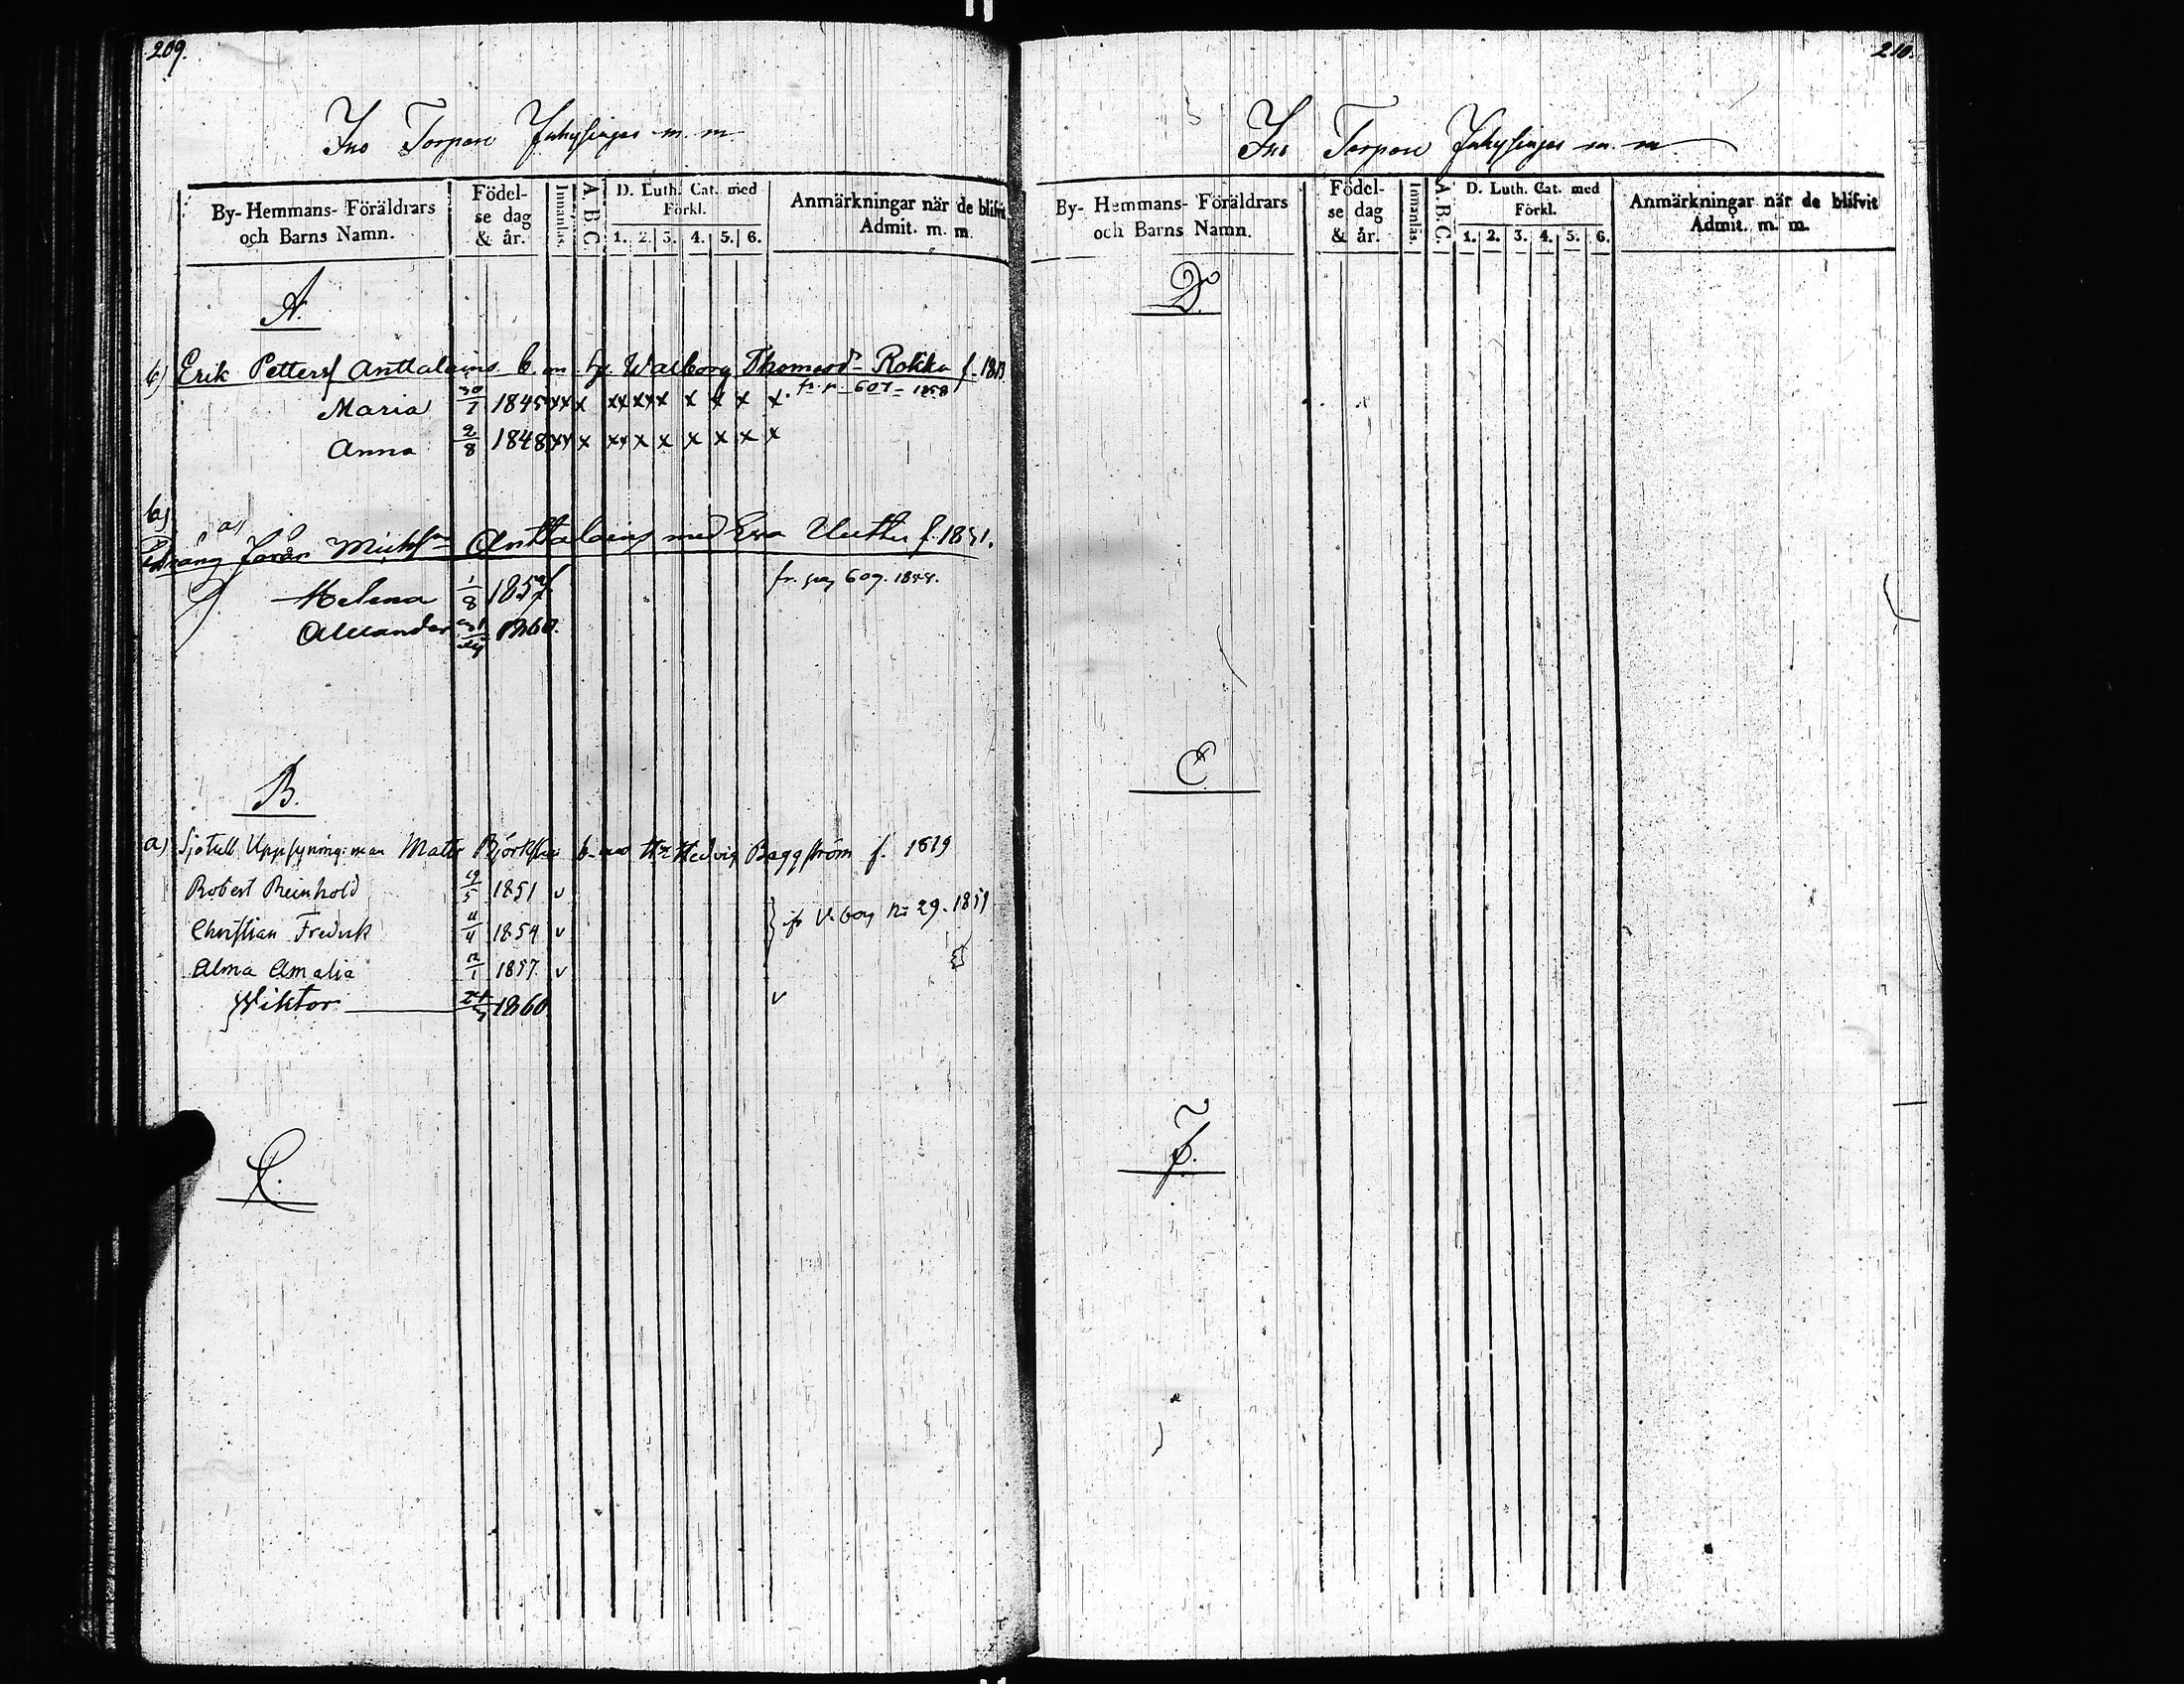 209.
Ino Torpare Inhysingar m. m.
By- Hemmans- Föräldrars och Barns Namn.
Födelse dag & år.
Innanläs.
A. B. C.
D. Luth. Cat. med Förkl.
1. 2. 3. 4. 5. 6.
Anmärkningar när de blifvit Admit. m. m.
A.
Erik Petters Anttalains b. m. Walborg Thomasd. Rokka f. 1813
Maria 30/7 1845 xx x xx xxx x x x x. fr. p. 607 - 1858
Anna 2/8 1848 xx x xx x x x x x x
a)
Dräng Michs Anttalains med Eva f. 1831.
fr. pag 609. 1858.
Helena 1/8 1857
Alexander 1860.
B.
a) Sjötull Uppsyningsman Matts b. med Hedvig Baggström f. 1819
Robert Reinhold 19/5 1851 v
Christian Fredrik 11/4 1854 v
No 29. 1859
Alma Amalia 12/1 1857. v
Wiktor 1860. v
C.
210.
Ino Torpare Inhysingar m. m
By- Hemmans- Föräldrars och Barns Namn.
Födelse dag & år.
Innanläs.
A. B. C.
D. Luth. Cat. med Förkl.
1. 2. 3. 4. 5. 6.
Anmärkningar när de blifvit Admit. m. m.
D.
E.
F.